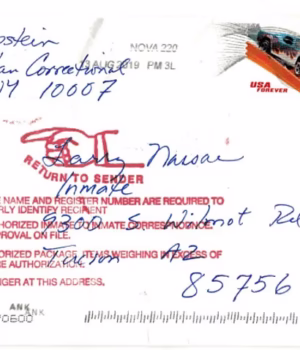 pstein
an Correctional
NY 10007
NOVA 220
AUG 2019 PM 3L
USA
FOREVER
RETURN TO SENDER
Larry Nassar
Inmate
E NAME AND REGISTER NUMBER ARE REQUIRED TO
RLY IDENTIFY RECIPIENT
9300 S Wilmot Rd
HORIZED INMATE TO INMATE CORRESPONDENCE
PROVAL ON FILE.
HORIZED PACKAGE, ITEMS WEIGHING IN EXCESS OF
RE AUTHORIZATION.
Tucson AZ
NGER AT THIS ADDRESS.
85756
ANK
ANK